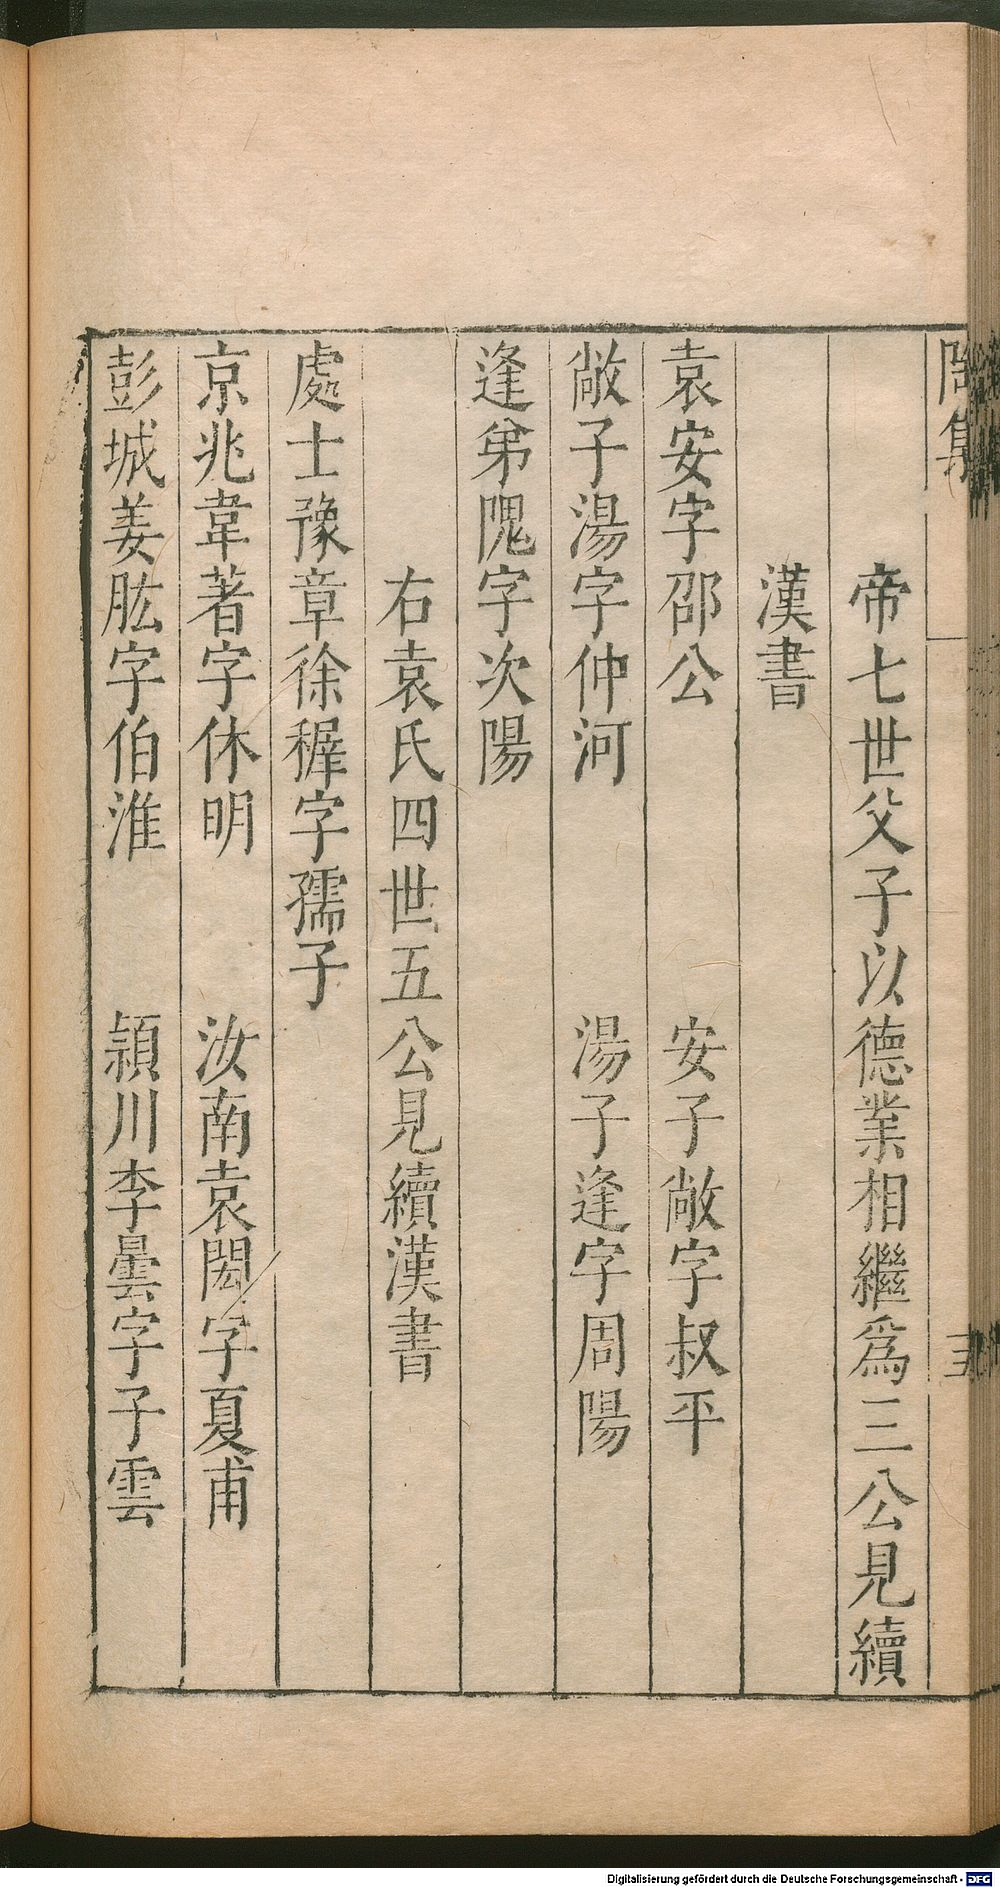 陶集
帝七世父子以德業相繼爲三公見續
漢書
袁安字邵公　安子敞字叔平
敞子湯字仲河　湯子逢字周陽
逢弟隗字次陽
右袁氏四世五公見續漢書
處士豫章徐穉字孺子
京兆韋著字休明　汝南袁閎字夏甫
彭城姜肱字伯淮　潁川李曇字子雲
Digitalisierung gefördert durch die Deutsche Forschungsgemeinschaft - DFG